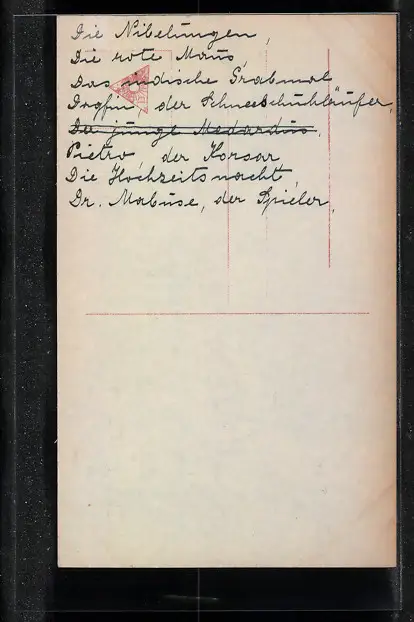 Die Nibelungen,
Die rote Maus,
Das indische Grabmal
Dagfin, der Schneeschuhläufer,
Der junge Medardus,
Pietro, der Korsar,
Die Hochzeitsnacht,
Dr. Mabuse, der Spieler,